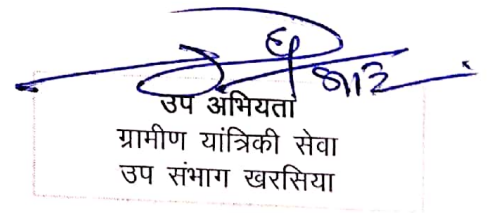 उप अभियता
ग्रामीण यांत्रिकी सेवा
उप संभाग खरसिया